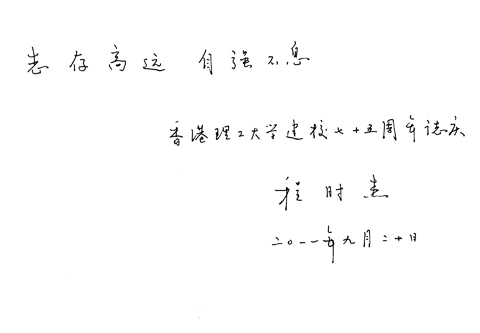 志存高远 自强不息
香港理工大学建校七十五周年志庆
程时杰
二〇一一年九月二十日